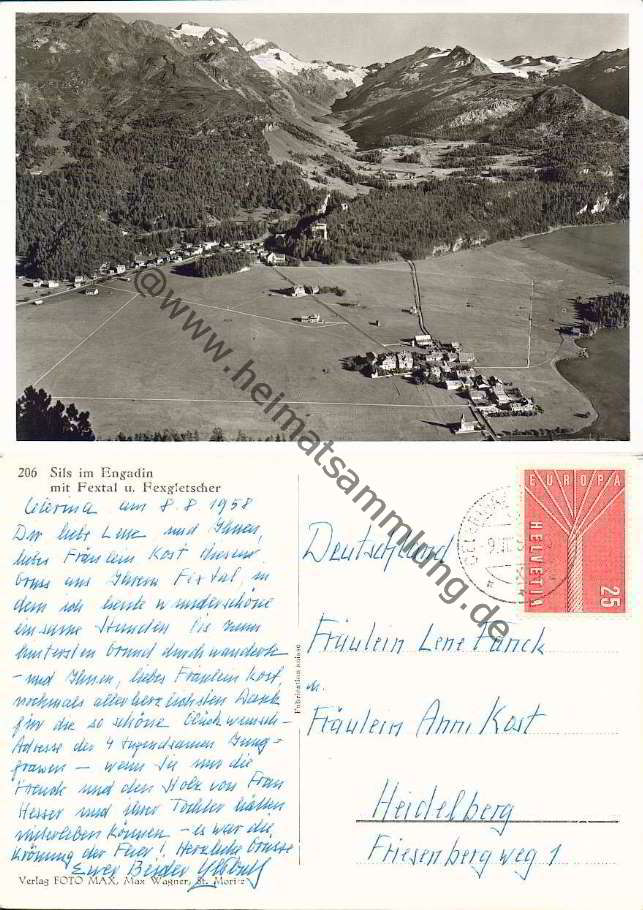 @www.heimatsammlung.de
206 Sils im Engadin
mit Fextal u. Fexgletscher
Celerina am 8.8.1958
Dir liebe Lene und Ihnen,
liebes Fräulein Kost diesen
Gruss aus Ihrem Fextal, in
dem ich heute wunderschöne
einsame Stunden bis zum
hintersten Grund durchwanderte
- und Ihnen, liebes Fräulein Kost,
nochmals allerherzlichsten Dank
für die so schöne Glückwunsch-
Adresse der 4 tugendsamen Jung-
frauen - wenn Sie nur die
Freude und den Stolz von Frau
Hesser und ihrer Tochter hätten
miterleben können - es war die
Krönung der Feier! Herzliche Grüsse
Euer Beider
Verlag FOTO MAX, Max Wagner, St. Moritz
Fabrication suisse
EUROPA
HELVETIA
25
Deutschland
Fräulein Lene Fanck
u.
Fräulein Anni Kost
Heidelberg
Friesenbergweg 1